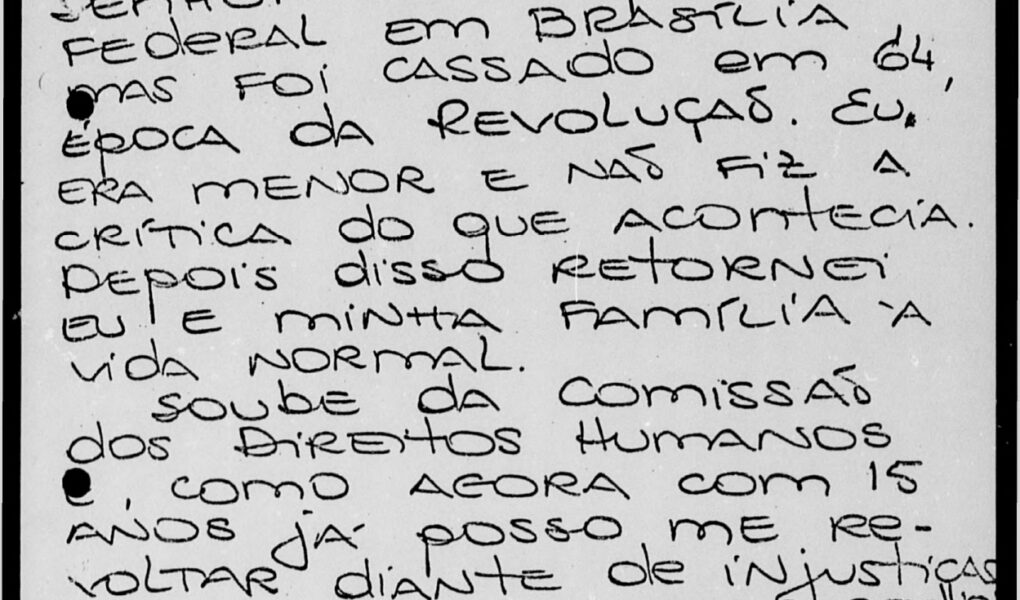 FEDERAL EM BRASÍLIA
MAS FOI CASSADO em 64,
ÉPOCA DA REVOLUÇÃO. EU,
ERA MENOR E NÃO FIZ A
CRÍTICA DO QUE ACONTECIA.
DEPOIS DISSO RETORNEI
EU E MINHA FAMÍLIA À
VIDA NORMAL.
SOUBE DA COMISSÃO
DOS DIREITOS HUMANOS
E, COMO AGORA COM 15
ANOS JÁ POSSO ME RE-
VOLTAR DIANTE de INJUSTIÇAS